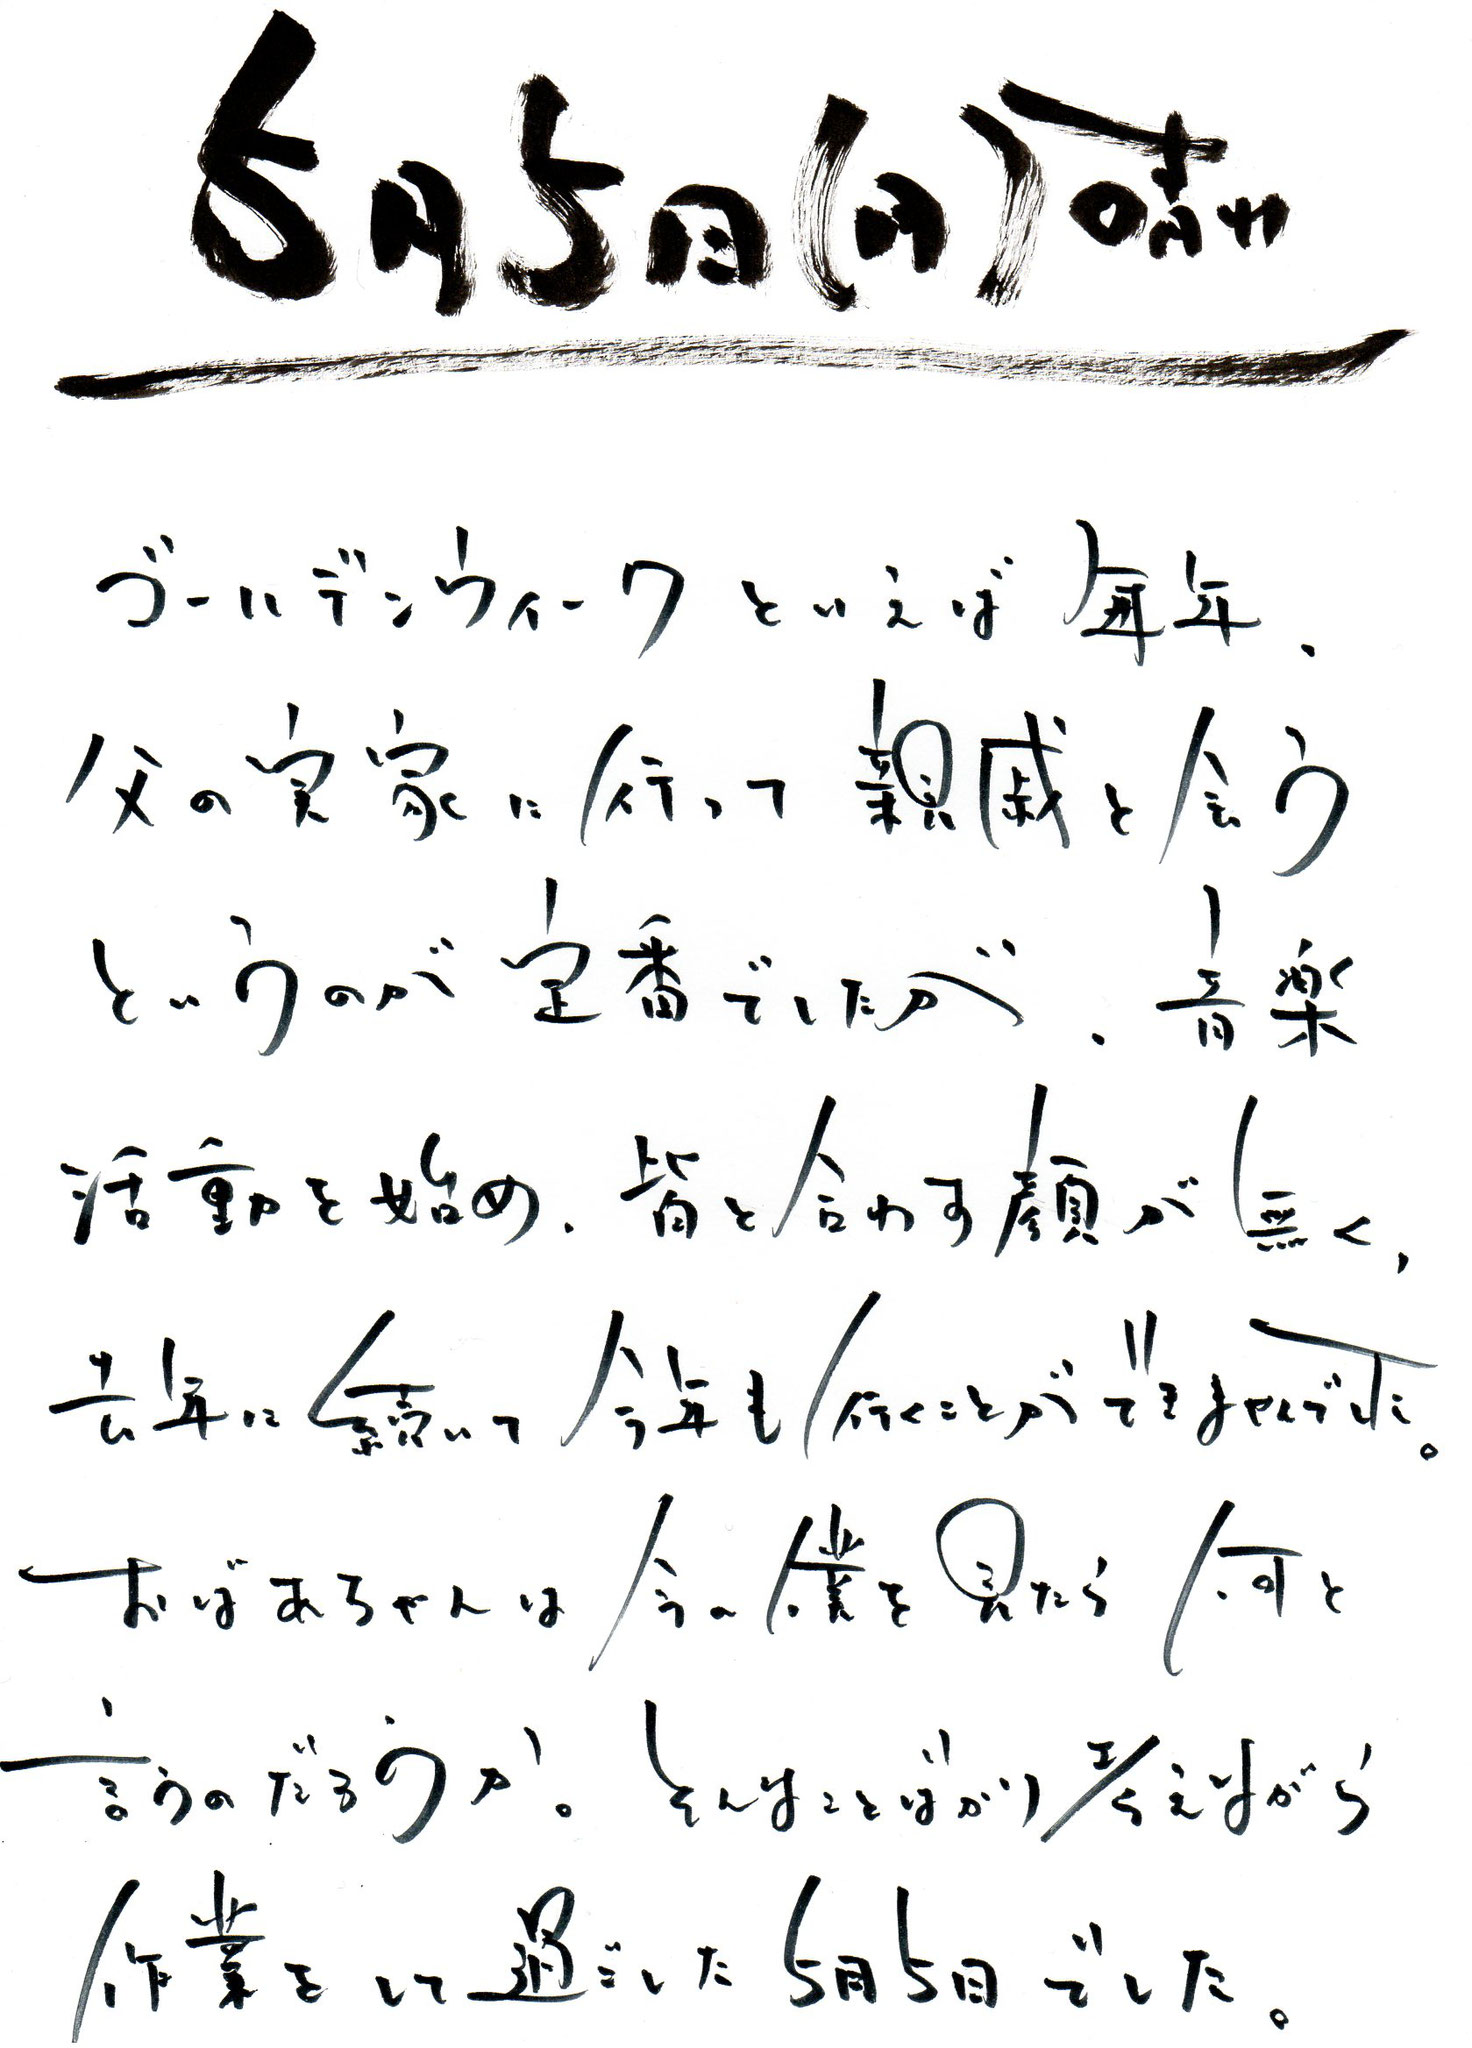 5月5日(月)晴れ
ゴールデンウィークといえば毎年、
父の実家に行って親戚と会う
というのが定番でしたが、音楽
活動を始め、皆と合わす顔が無く、
去年に続いて今年も行くことができませんでした。
おばあちゃんは今の僕を見たら何と
言うのだろうか。そんなことばかり考えながら
作業をして過ごした5月5日でした。